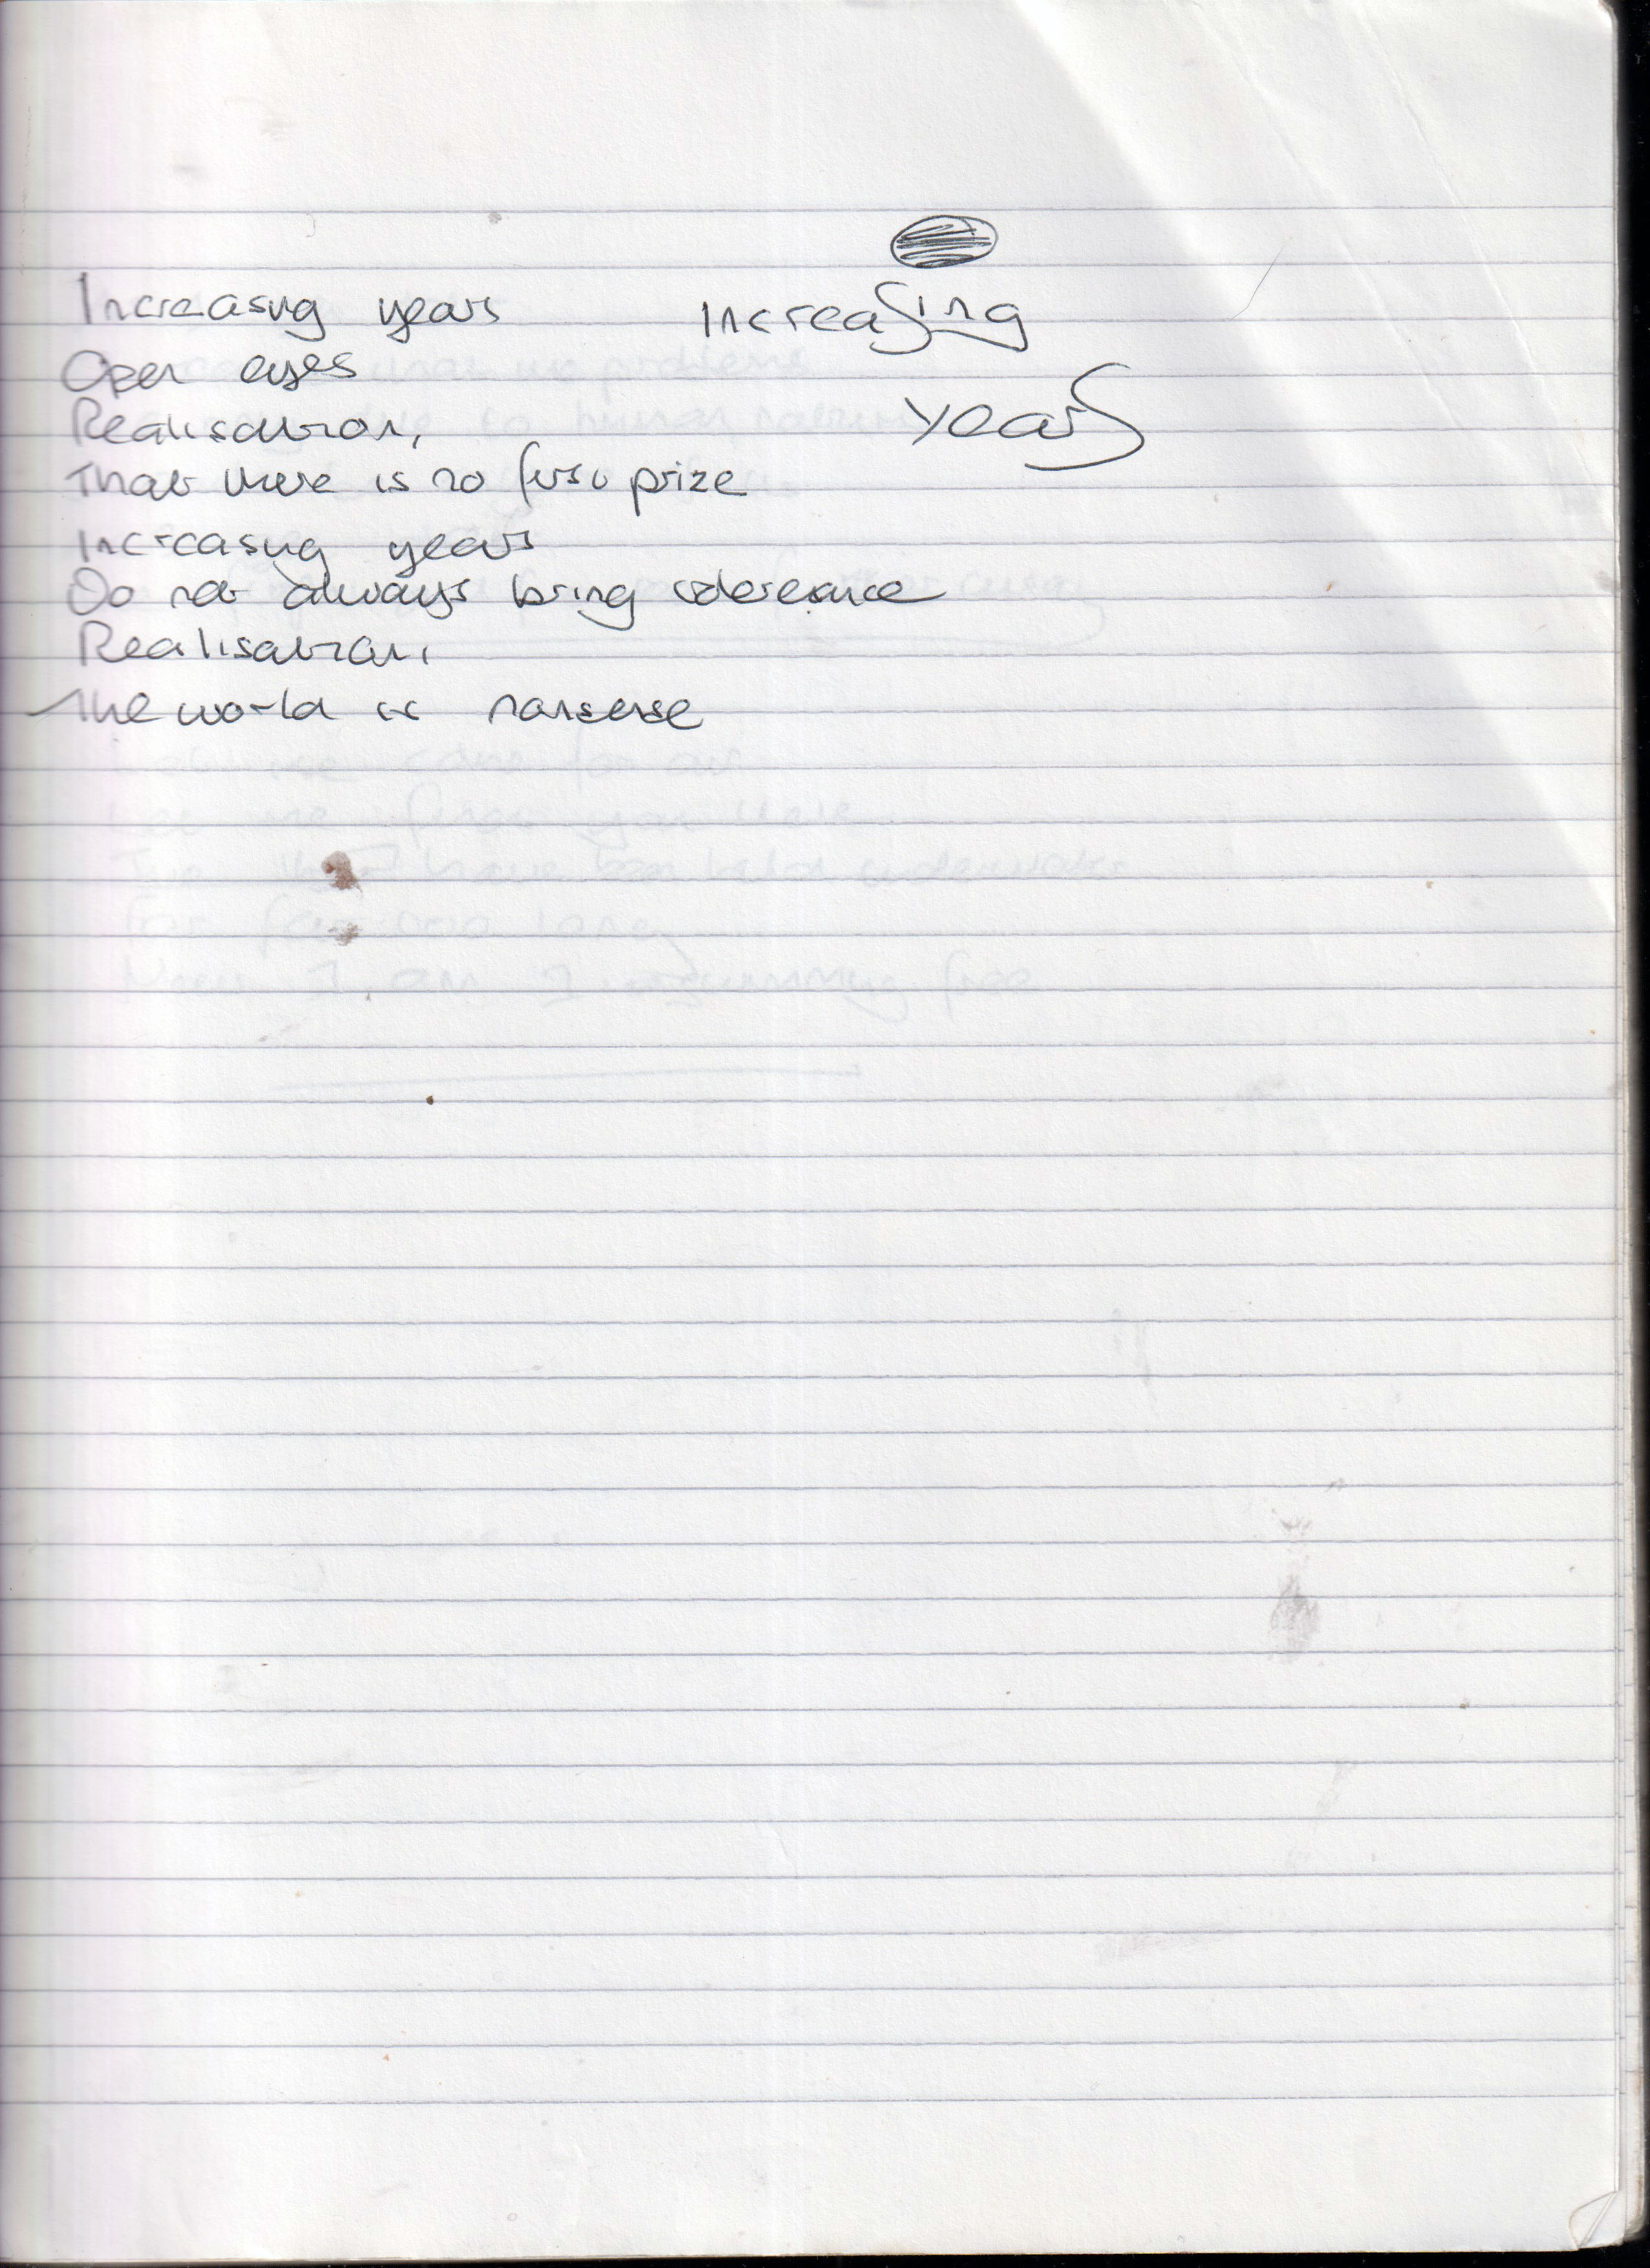 Increasing years
Open eyes
Realisation,
That there is no first prize
Increasing years
Do not always bring tolerance
Realisation,
The world is nonsense
Increasing
years